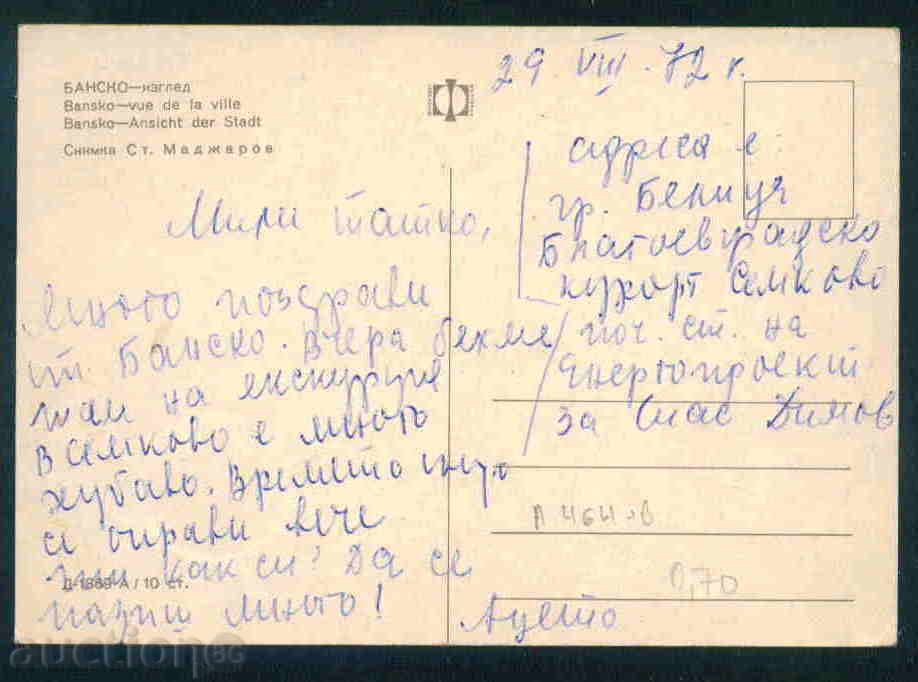 БАНСКО—изглед
Bansko—vue de la ville
Bansko—Ansicht der Stadt
Снимка Ст. Маджаров
29 VIII. 72 г.
Мили татко,
Много поздрави
от Банско. Вчера бяхме
там на екскурзия
В Семково е много
хубаво. Времето
се оправи вече
ти как си? Да се
пазиш много!
Ацето
адреса е
гр. Белица
Благоевградско
курорт Семково
поч. ст. на
Енергопроект
за Спас Димов
Д-1869-А / 10 ст.
0,70
auction BG